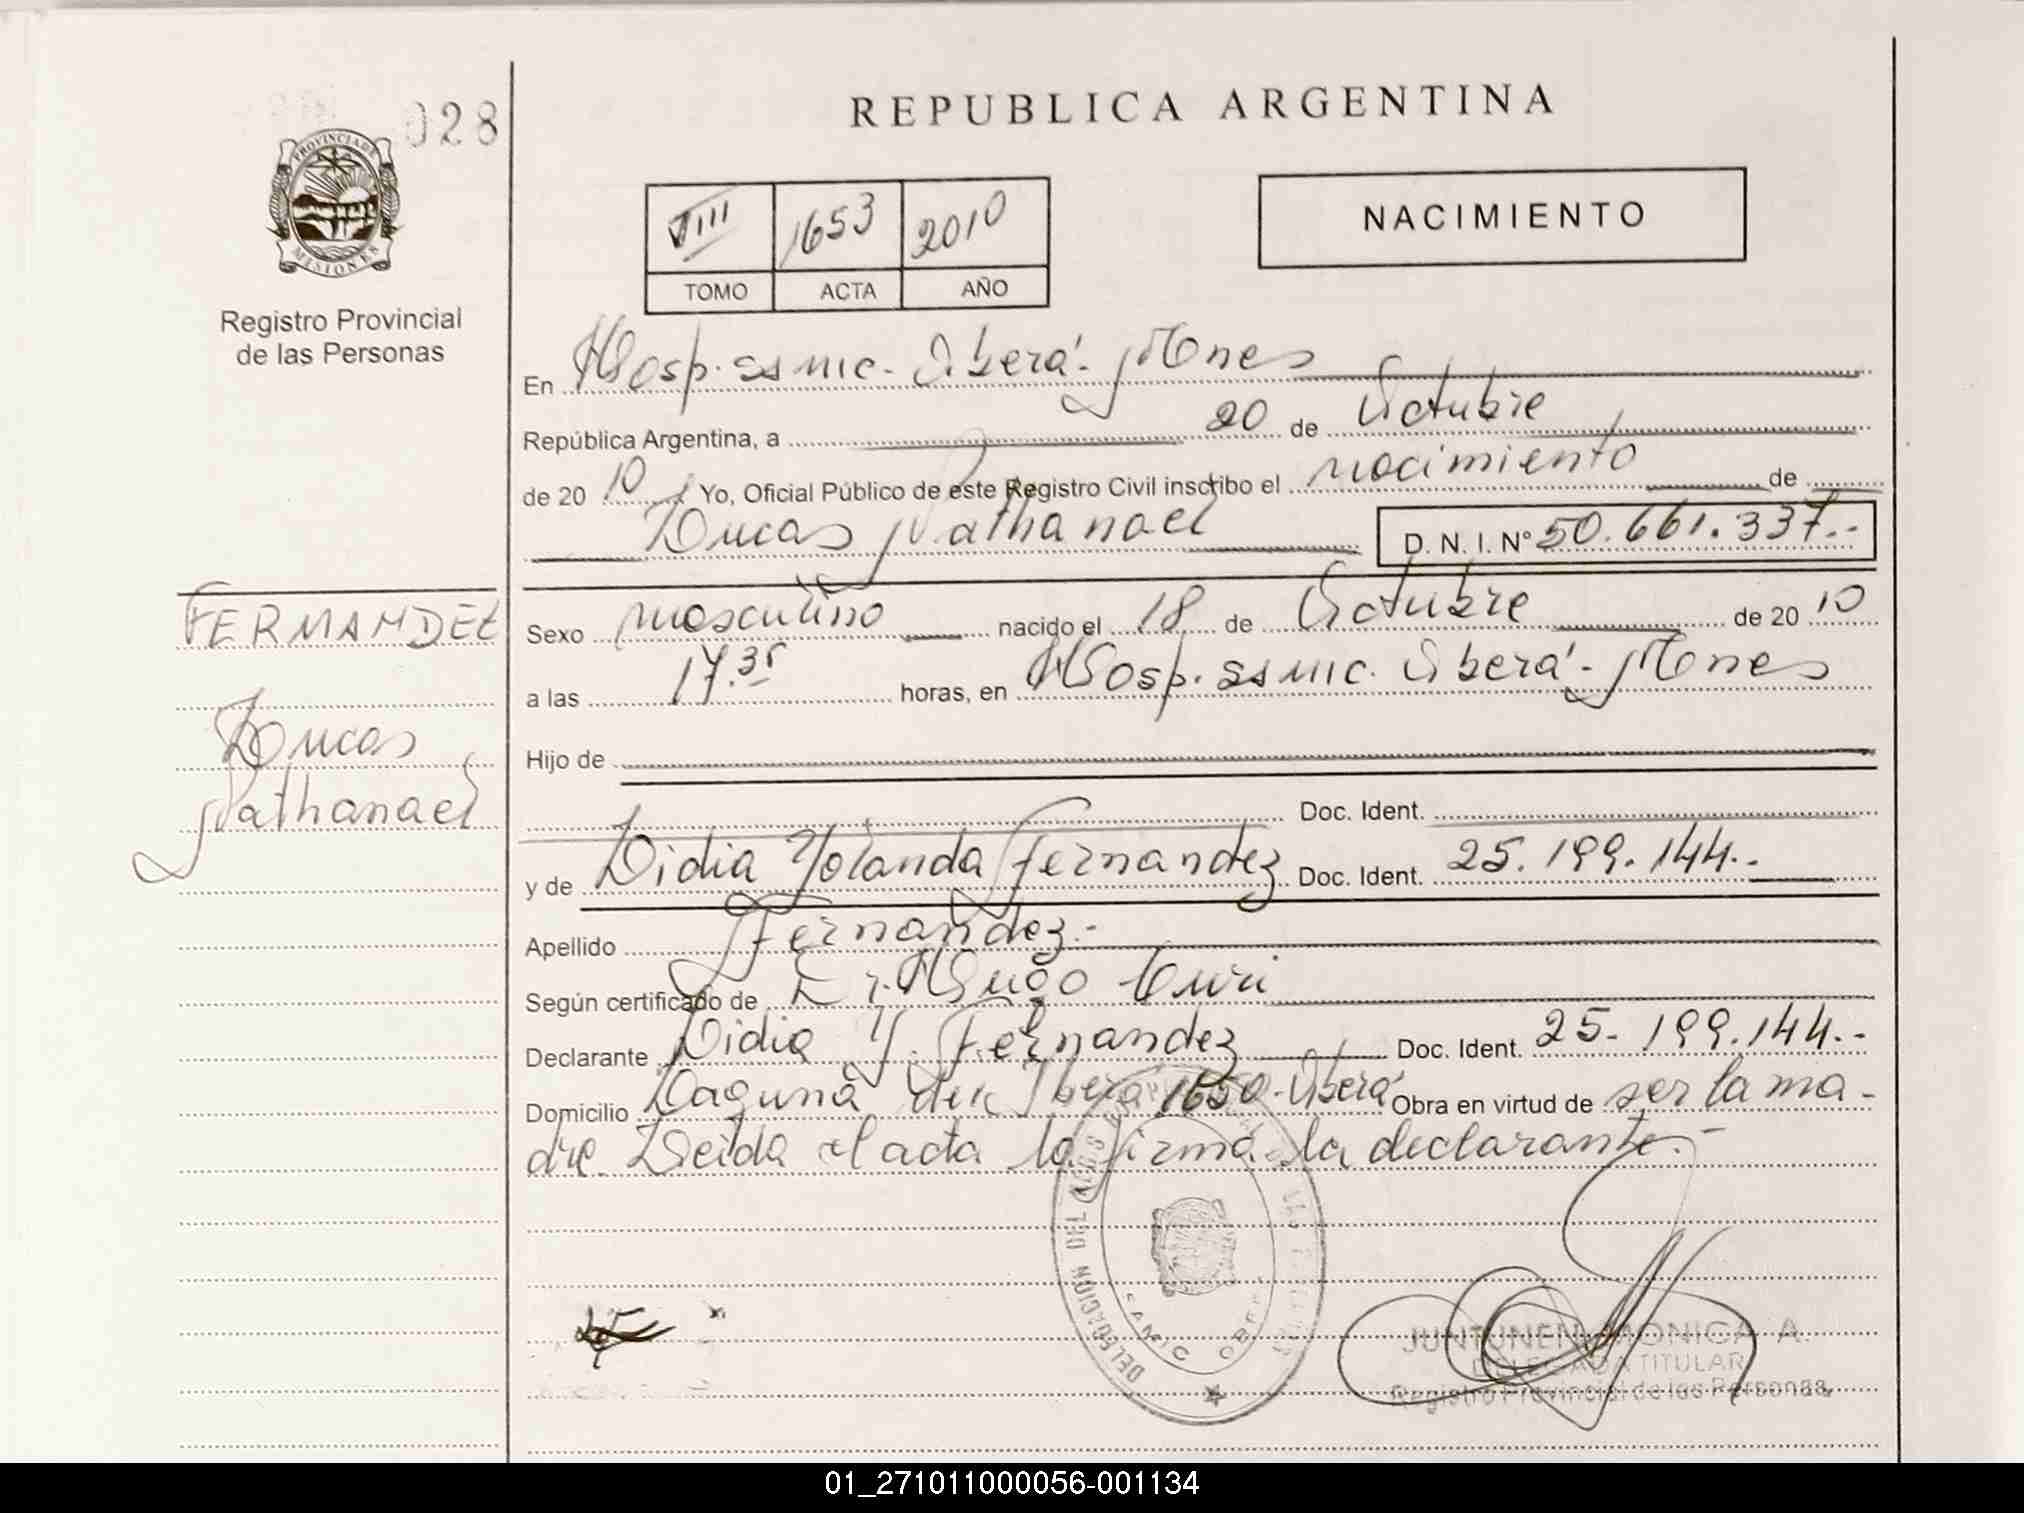 028
PROVINCIA DE
MISIONES
Registro Provincial
de las Personas
REPUBLICA ARGENTINA
VIII 1653 2010
TOMO ACTA AÑO
NACIMIENTO
En Hosp. ss mic. Iberá - Mnes
República Argentina, a 20 de Octubre
de 20 10 Yo, Oficial Público de este Registro Civil inscribo el nacimiento de
Lucas Nathanael D. N. I. N° 50.661.337.-
FERNANDEZ
Lucas
Nathanael
Sexo masculino nacido el 18 de Octubre de 20 10
a las 17.35 horas, en Hosp. ss mic. Iberá - Mnes
Hijo de
Doc. Ident.
y de Lidia Yolanda Fernandez Doc. Ident. 25.199.144.-
Apellido Fernandez.-
Según certificado de Dr. Hugo
Declarante Lidia Y. Fernandez Doc. Ident. 25.199.144.-
Domicilio Laguna del Iberá 1650 - Iberá Obra en virtud de ser la ma-
dre. Leida el acta la firma la declarante.-
DELEGACION DEL
JUNTUNEN MONICA A.
DELEGADA TITULAR
Registro Provincial de las Personas
01_271011000056-001134